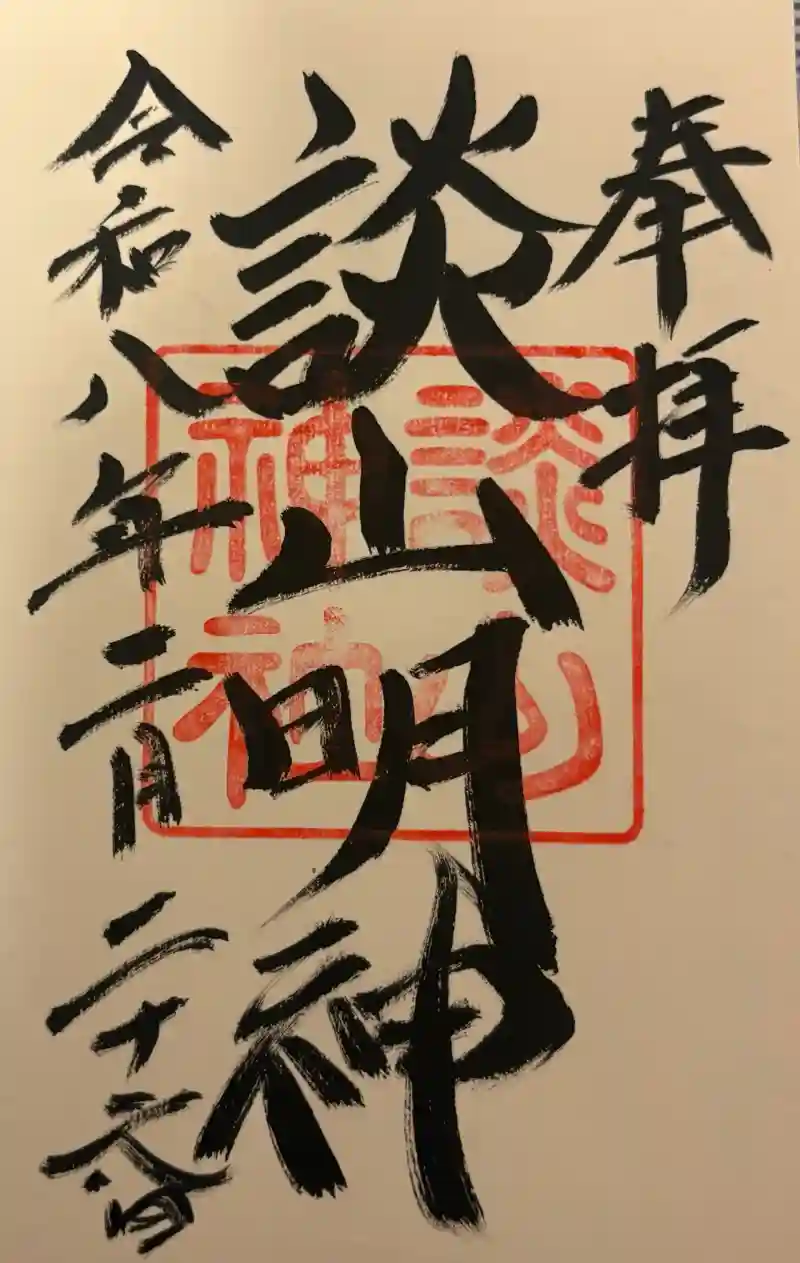 奉拝
談山明神
談山神社
令和八年二月二十六日